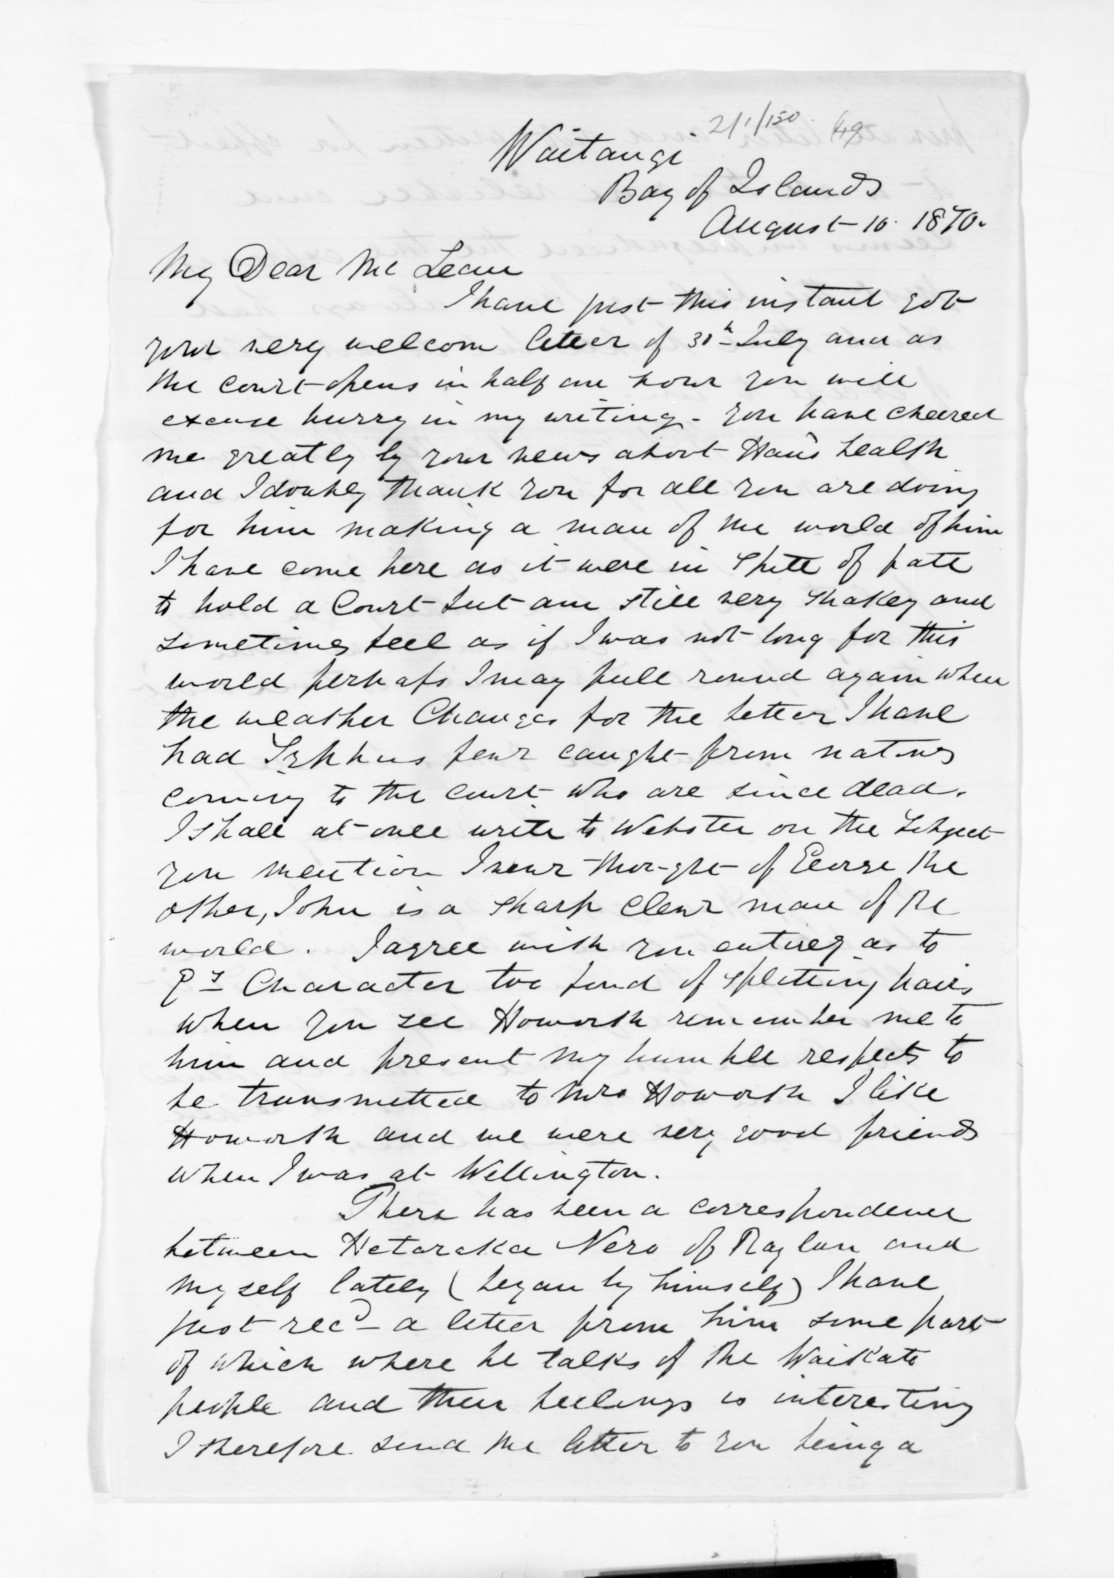 2/1/150 49
Waitangi
Bay of Islands
August 10. 1870.
My Dear Mc Lean
I have just this instant got
your very welcom letter of 30th July and as
the court opens in half an hour you will
excuse hurry in my writing. you have cheered
me greatly by your news about Hau's health
and I doubly thank you for all you are doing
for him making a man of the world of him
I have come here as it were in spite of fate
to hold a Court but am still very shakey and
sometimes feel as if I was not long for this
world perhaps I may pull round again when
the weather Changes for the better I have
had Typhus fever caught from natives
coming to the court who are since dead.
I shall at once write to Webster on the subject
you mention I never thought of George the
other, John is a sharp clever man of the
world. I agree with you entirely as to
Character too fond of splitting hairs
when you see Howorth remember me to
him and present my humble respects to
be transmitted to Mrs Howorth I like
Howorth and we were very good friends
when I was at Wellington.
There has been a correspondence
between Hetaraka Nero of Raglan and
myself lately (began by himself) I have
just recd a letter from him some part
of which where he talks of the Waikato
people and their feelings is interesting
I therefore send the letter to you being a